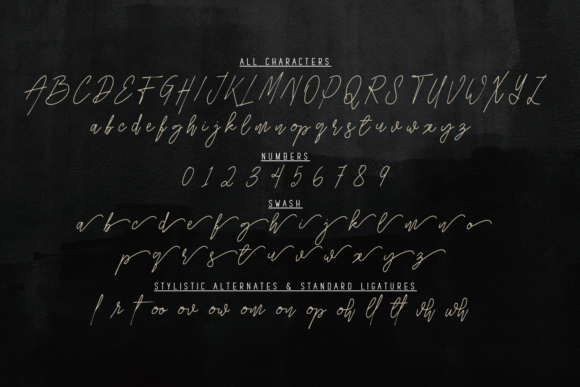 ALL CHARACTERS
ABCDEFGHIJKLMNOPQRSTUVWXYZ
abcdefghijklmnopqrstuvwxyz
NUMBERS
0123456789
SWASH
abcdefghijklmno
pqrstuvwxyz
STYLISTIC ALTERNATES & STANDARD LIGATURES
l r t oo ov ow om on op oh ll tt vh wh